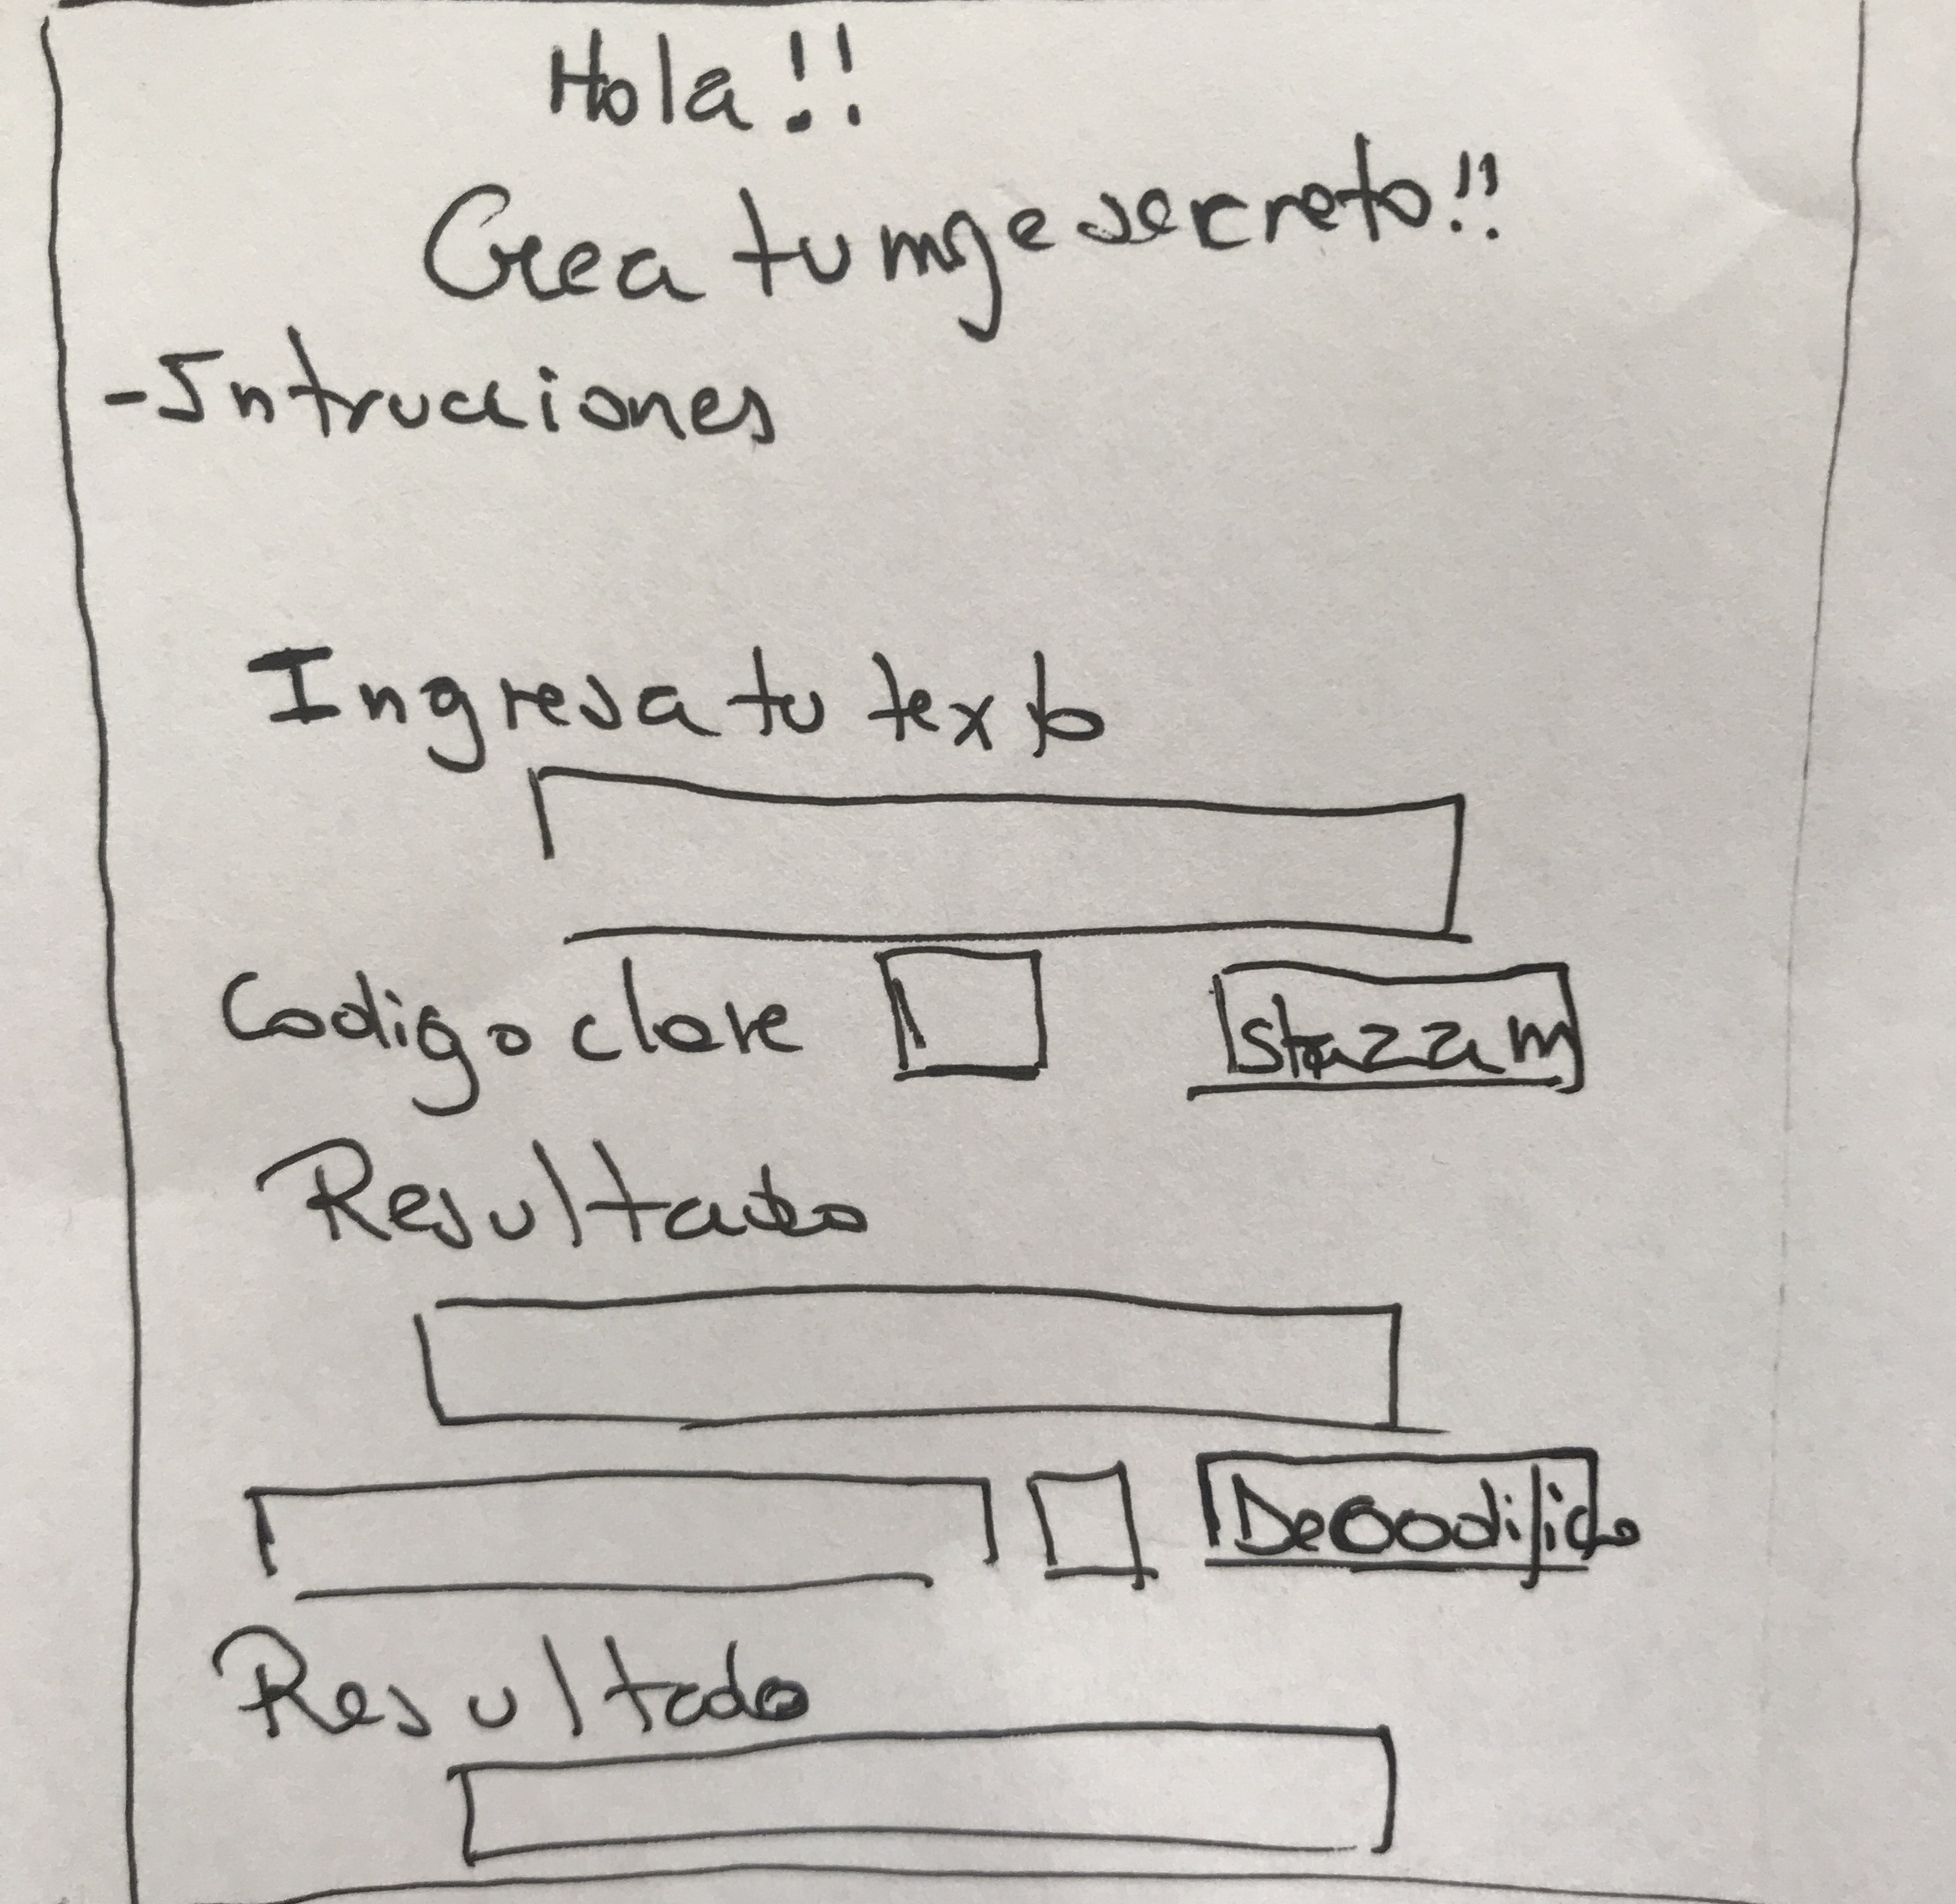 Hola!!
Crea tu mge secreto!!
-Intrucciones
Ingresa tu texto
Codigo clave
Resultado
Decodifica
Resultado